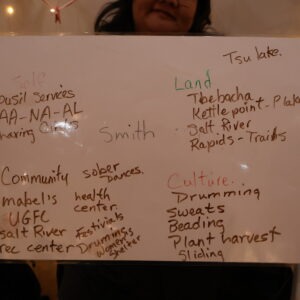 Tsu lake.
Self
Cousil Services
AA-NA-AL
sharing Circles
Land
Thebacha
Kettle point - Plake
Salt River
Rapids - Trails
Smith
Community
mabel's
UGFC
salt River
rec center
sober
Dances.
health
center.
Festiviels
Drumming
women's
shelter
Culture.
Drumming
Sweats
Beading
Plant harvest
Sliding